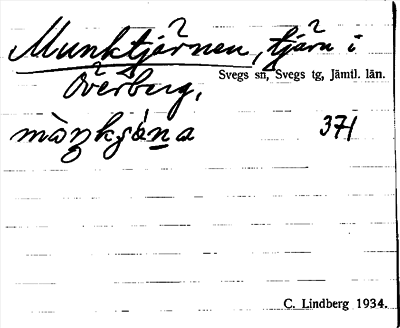 Munktjärnen, tjärn i
Överberg,
Svegs sn, Svegs tg, Jämtl. län.
371
C. Lindberg 1934.